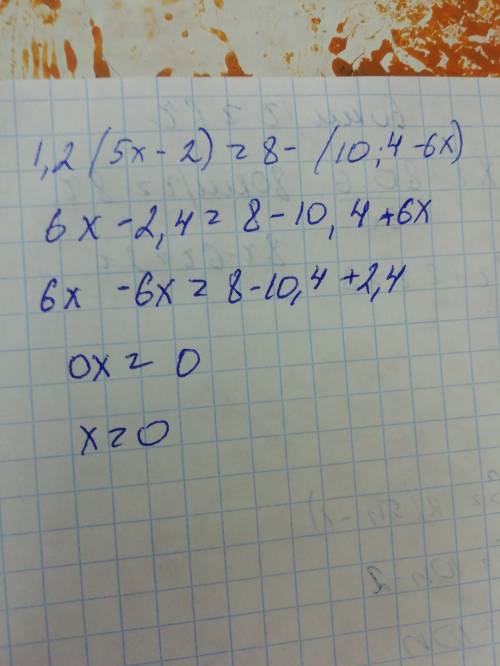 1,2 (5x - 2) = 8 - (10,4 - 6x)
6x - 2,4 = 8 - 10,4 + 6x
6x - 6x = 8 - 10,4 + 2,4
0x = 0
x = 0